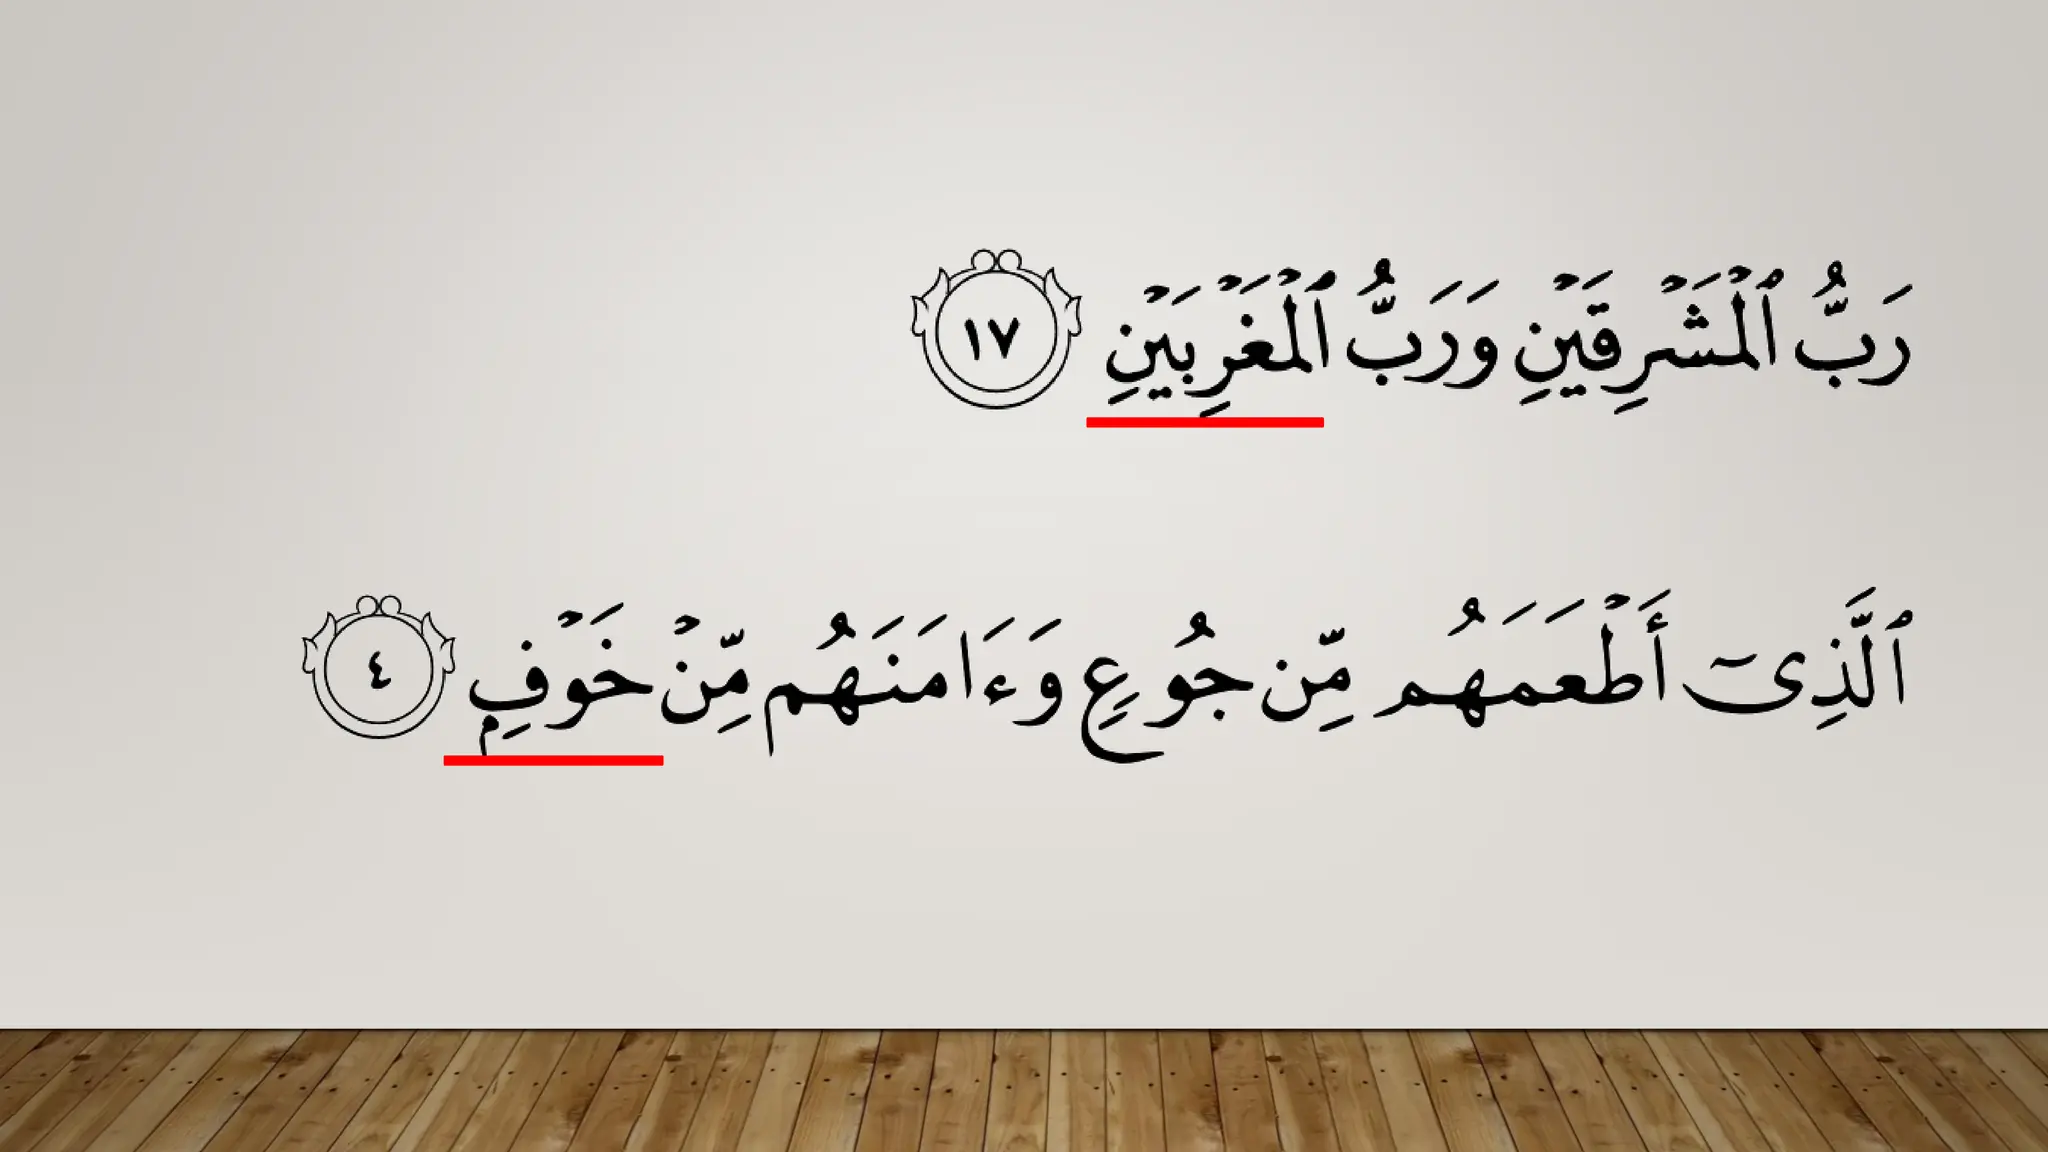 رَبُّ ٱلۡمَشۡرِقَيۡنِ وَرَبُّ ٱلۡمَغۡرِبَيۡنِ ١٧
ٱلَّذِيٓ أَطۡعَمَهُم مِّن جُوعٖ وَءَامَنَهُم مِّنۡ خَوۡفِۭ ٤